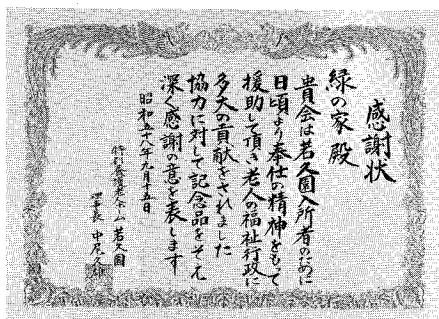 感謝状
緑の家 殿
貴会は若久園入所者のために
日頃より奉仕の精神をもって
援助して頂き老人の福祉行政に
多大の貢献をされました
協力に対して記念品をそえ
深く感謝の意を表します
昭和五十八年九月十五日
特別養護老人ホーム 若久園
理事長 中尾久雄